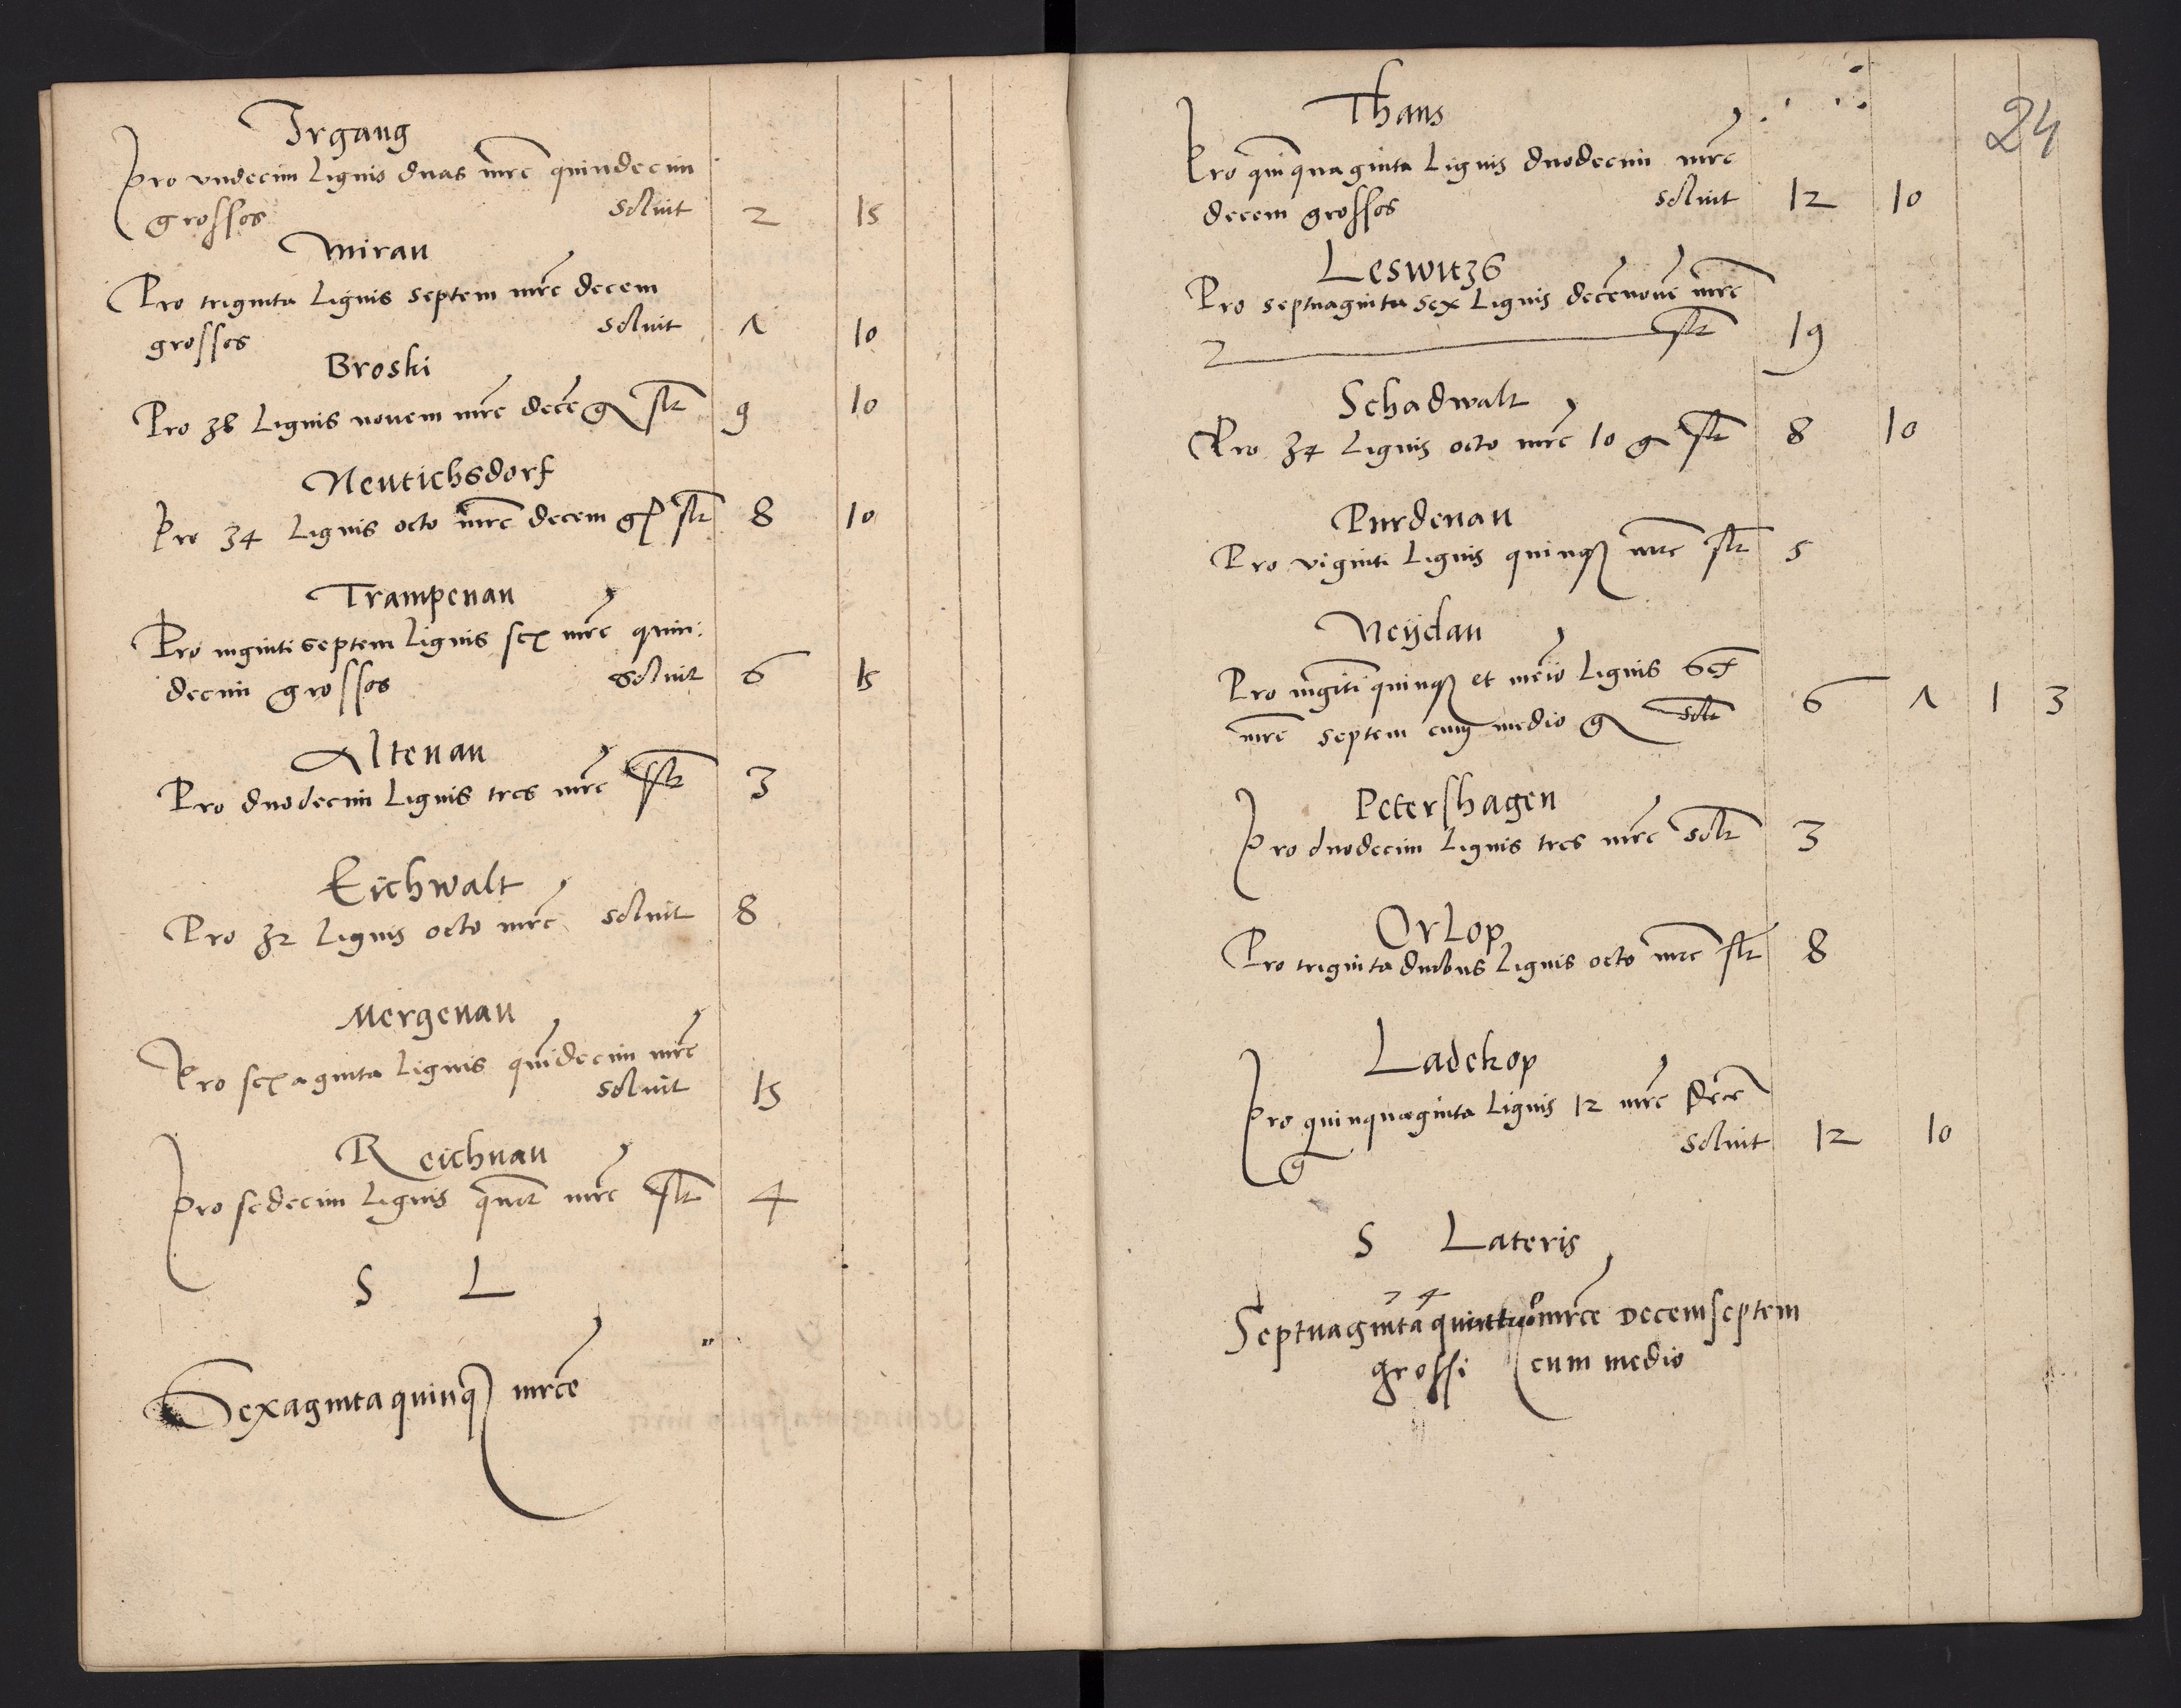 Irgang
Pro vndecim Lignis duas mrc quindecim
grossos soluit 2 15
Mirau
Pro triginta Lignis septem mrc decem
grossos soluit 7 10
Broski
Pro 38 Lignis nouem mrc decē g slt 9 10
Neutichsdorf
Pro 34 Lignis octo mrc decem g slt 8 10
Trampenau
Pro viginti septem Lignis sex mrc quin:
decim grossos soluit 6 15
Altenau
Pro duodecim Lignis tres mrc slt 3
Eichwalt
Pro 32 Lignis octo mrc soluit 8
Mergenau
Pro sexaginta Lignis quīdecim mrc
soluit 15
Reichnau
Pro sedecim Lignis quatr mrc slt 4
S L
Sexaginta quinq mrce
24
Thans
Pro quīquaginta Lignis duodecim mrc
decem grossos soluit 12 10
Leswitz6
Pro septuaginta sex Lignis decēnouē mrc
slt 19
Schadwalt
Pro 34 Lignis octo mrc 10 g slt 8 10
Purdenau
Pro viginti Lignis quinq mrc slt 5
Neÿdau
Pro vigīti quinq et meio Lignis sex
mrc septem cum medio g solt 6 7 1 3
Petershagen
Pro duodecim Lignis tres mrc solt 3
Orlop
Pro triginta duobus Lignis octo mrc slt 8
Ladekop
Pro quinquaginta Lignis 12 mrc Decē
g soluit 12 10
S Lateris
74
Septuaginta mrce Decem septem
grossi cum medio